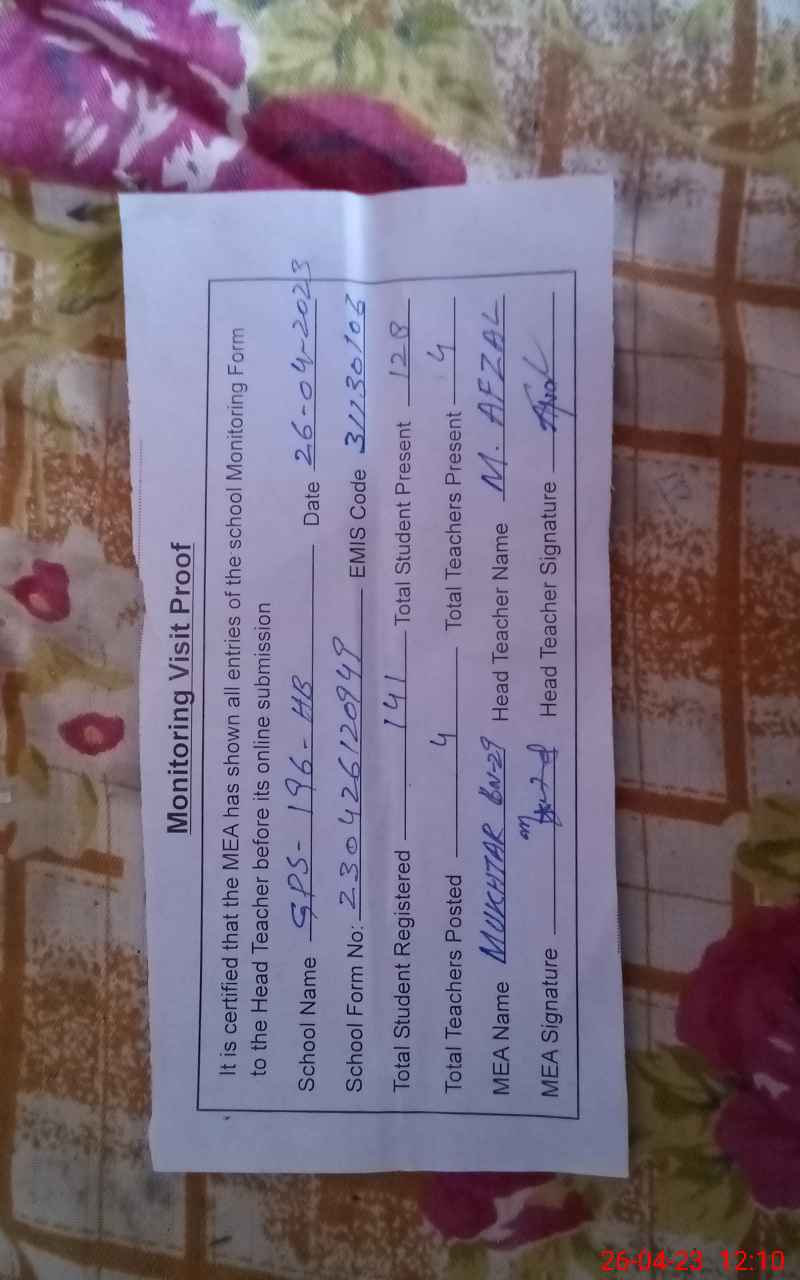 Monitoring Visit Proof
It is certified that the MEA has shown all entries of the school Monitoring Form
to the Head Teacher before its online submission
School Name GPS-196-HB Date 26-04-2023
School Form No: 230426120949 EMIS Code 31130106
Total Student Registered 141 Total Student Present 128
Total Teachers Posted 4 Total Teachers Present 4
MEA Name MUKHTAR BN-29 Head Teacher Name M. AFZAL
MEA Signature Head Teacher Signature
26-04-23 12:10